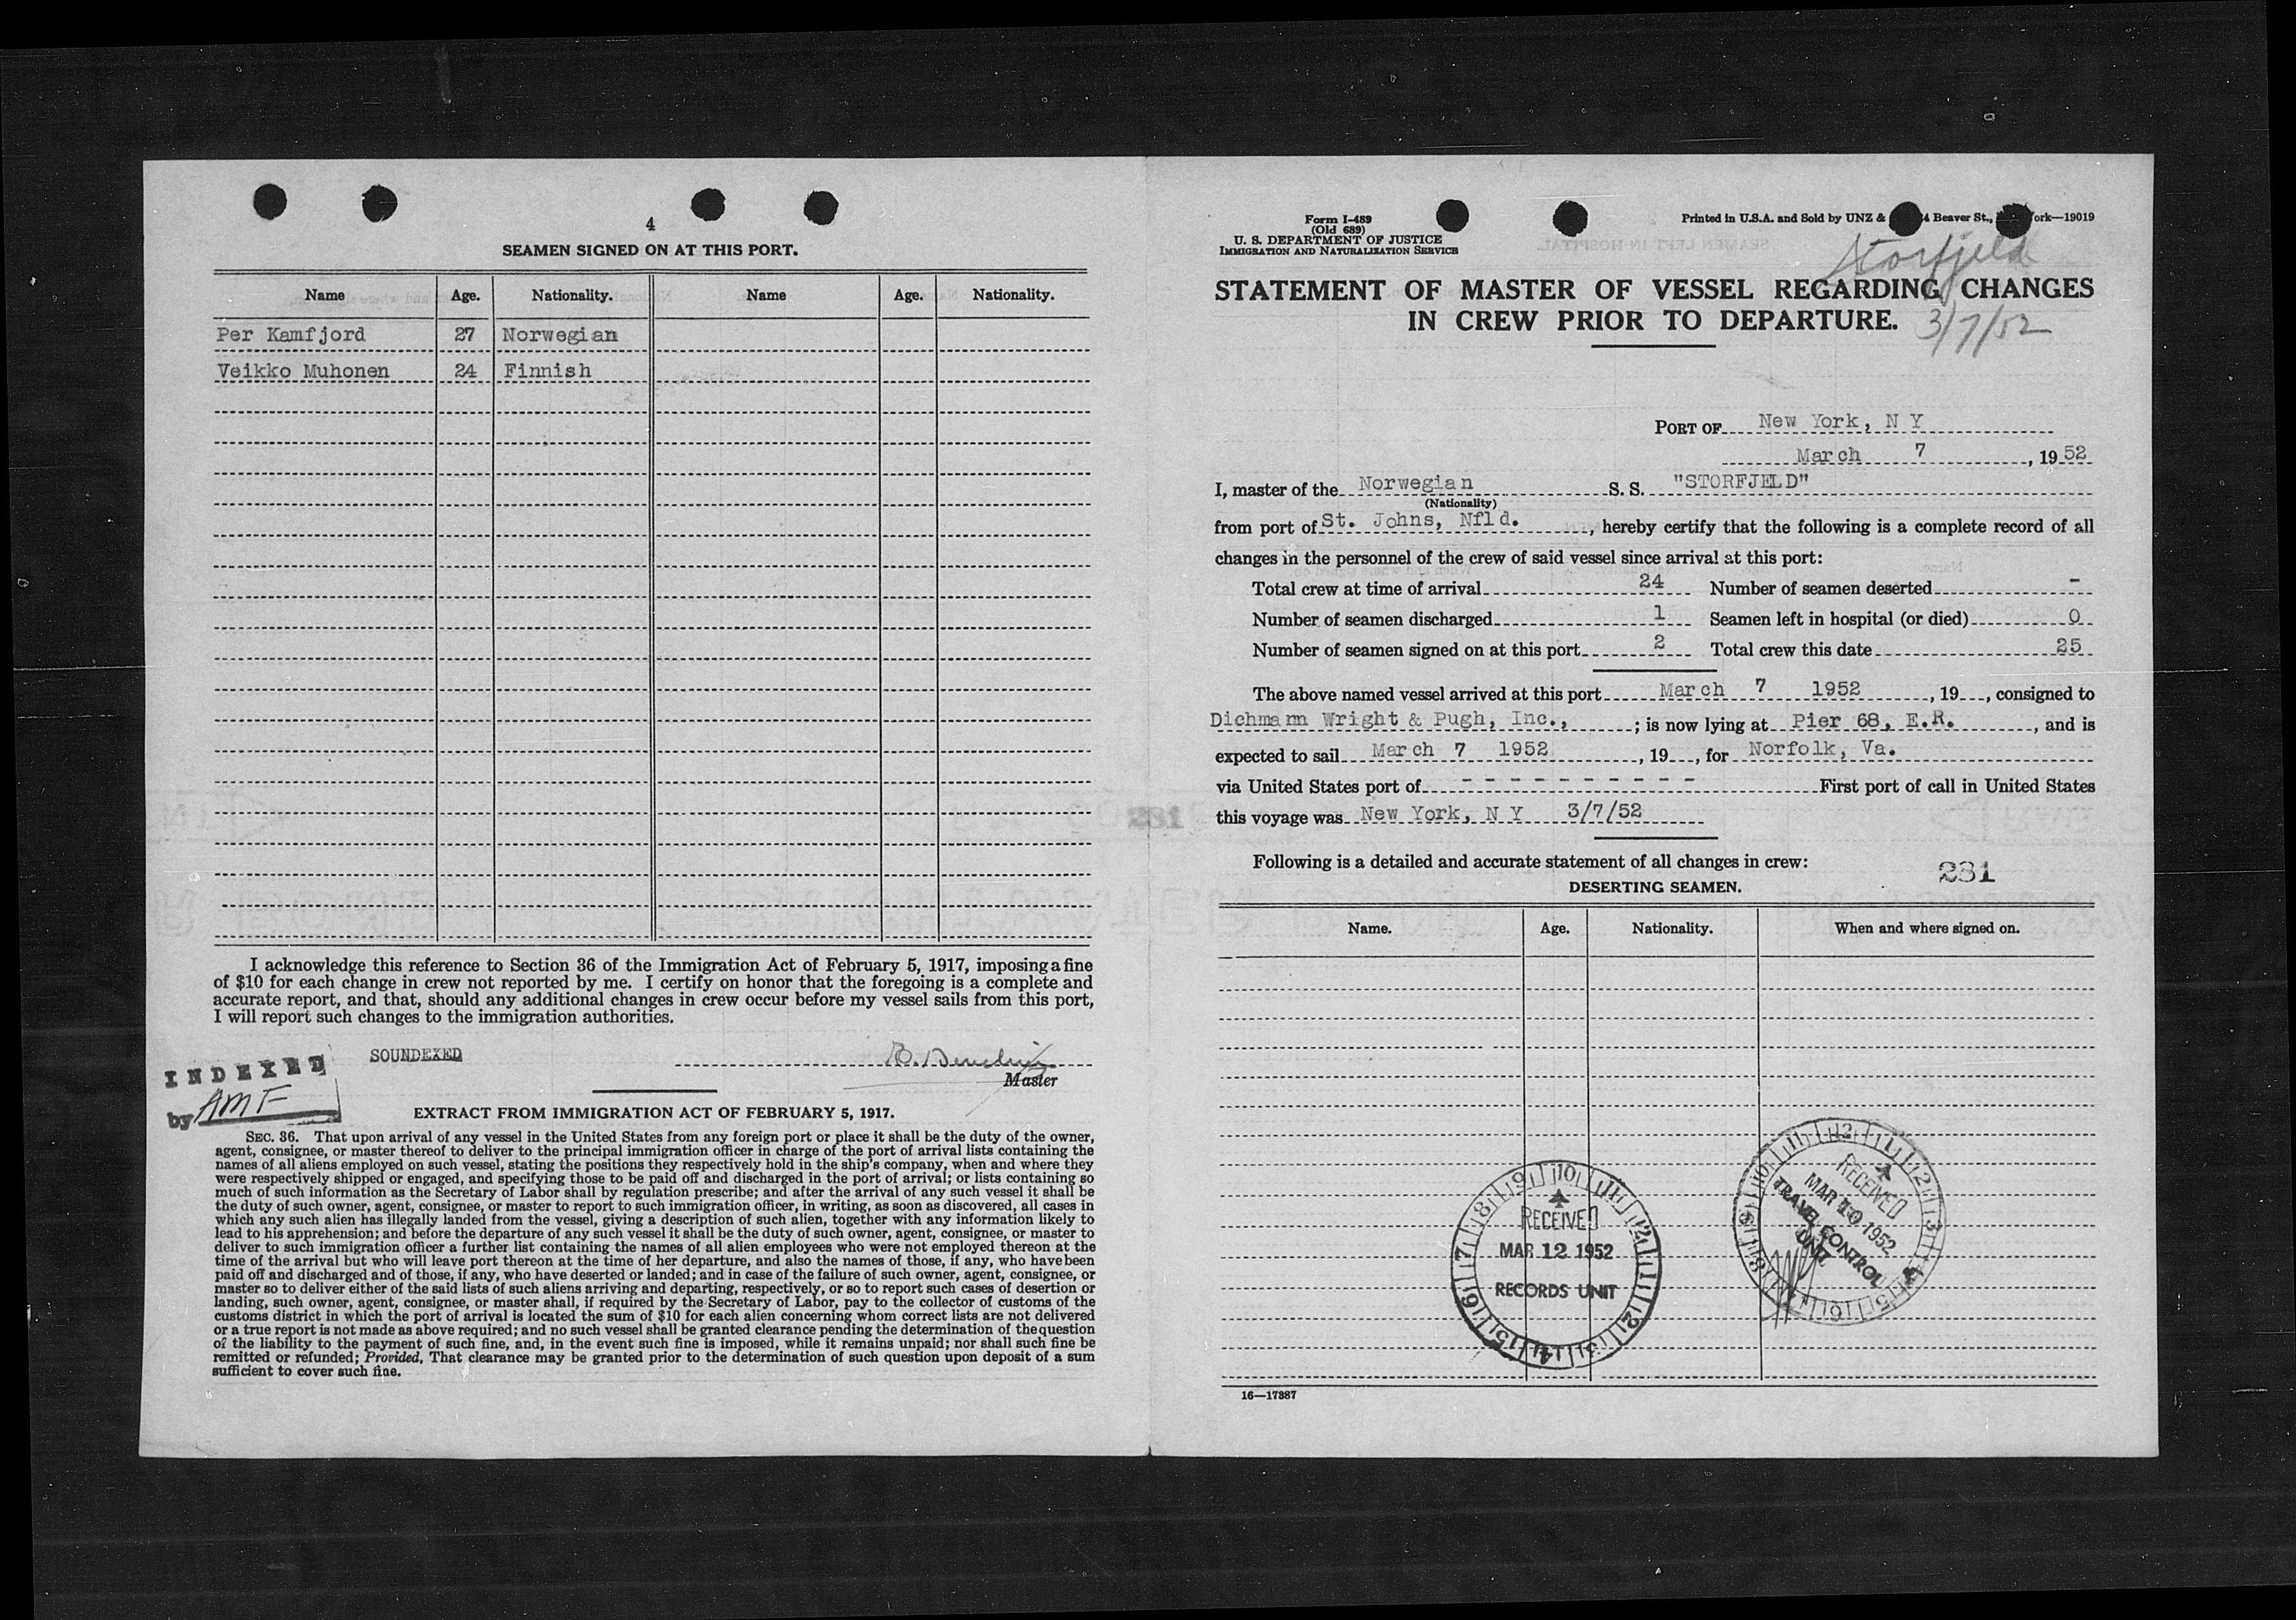 4
SEAMEN SIGNED ON AT THIS PORT.
Name Age. Nationality. Name Age. Nationality.
Per Kamfjord 27 Norwegian
Veikko Muhonen 24 Finnish
I acknowledge this reference to Section 36 of the Immigration Act of February 5, 1917, imposing a fine
of $10 for each change in crew not reported by me. I certify on honor that the foregoing is a complete and
accurate report, and that, should any additional changes in crew occur before my vessel sails from this port,
I will report such changes to the immigration authorities.
SOUNDEXED
INDEXED
by AMF
Master
EXTRACT FROM IMMIGRATION ACT OF FEBRUARY 5, 1917.
SEC. 36. That upon arrival of any vessel in the United States from any foreign port or place it shall be the duty of the owner,
agent, consignee, or master thereof to deliver to the principal immigration officer in charge of the port of arrival lists containing the
names of all aliens employed on such vessel, stating the positions they respectively hold in the ship's company, when and where they
were respectively shipped or engaged, and specifying those to be paid off and discharged in the port of arrival; or lists containing so
much of such information as the Secretary of Labor shall by regulation prescribe; and after the arrival of any such vessel it shall be
the duty of such owner, agent, consignee, or master to report to such immigration officer, in writing, as soon as discovered, all cases in
which any such alien has illegally landed from the vessel, giving a description of such alien, together with any information likely to
lead to his apprehension; and before the departure of any such vessel it shall be the duty of such owner, agent, consignee, or master to
deliver to such immigration officer a further list containing the names of all alien employees who were not employed thereon at the
time of the arrival but who will leave port thereon at the time of her departure, and also the names of those, if any, who have been
paid off and discharged and of those, if any, who have deserted or landed; and in case of the failure of such owner, agent, consignee, or
master so to deliver either of the said lists of such aliens arriving and departing, respectively, or so to report such cases of desertion or
landing, such owner, agent, consignee, or master shall, if required by the Secretary of Labor, pay to the collector of customs of the
customs district in which the port of arrival is located the sum of $10 for each alien concerning whom correct lists are not delivered
or a true report is not made as above required; and no such vessel shall be granted clearance pending the determination of the question
of the liability to the payment of such fine, and, in the event such fine is imposed, while it remains unpaid; nor shall such fine be
remitted or refunded; Provided, That clearance may be granted prior to the determination of such question upon deposit of a sum
sufficient to cover such fine.
Form I-489
(Old 689)
U. S. DEPARTMENT OF JUSTICE
IMMIGRATION AND NATURALIZATION SERVICE
Printed in U.S.A. and Sold by UNZ & 4 Beaver St., ork—19019
Storfjeld
STATEMENT OF MASTER OF VESSEL REGARDING CHANGES
IN CREW PRIOR TO DEPARTURE.
3/7/52
PORT OF New York, N Y
March 7, 19 52
I, master of the Norwegian S. S. "STORFJELD"
(Nationality)
from port of St. Johns, Nfld., hereby certify that the following is a complete record of all
changes in the personnel of the crew of said vessel since arrival at this port:
Total crew at time of arrival 24 Number of seamen deserted -
Number of seamen discharged 1 Seamen left in hospital (or died) 0
Number of seamen signed on at this port 2 Total crew this date 25
The above named vessel arrived at this port March 7 1952, 19, consigned to
Dichmann Wright & Pugh, Inc., ; is now lying at Pier 68, E.R., and is
expected to sail March 7 1952, 19, for Norfolk, Va.
via United States port of - - - - - - - - - - First port of call in United States
this voyage was New York, N Y 3/7/52
Following is a detailed and accurate statement of all changes in crew:
231
DESERTING SEAMEN.
Name. Age. Nationality. When and where signed on.
RECEIVED
MAR 12 1952
RECORDS UNIT
RECEIVED
MAR 10 1952
TRAVEL CONTROL
UNIT
16—17887